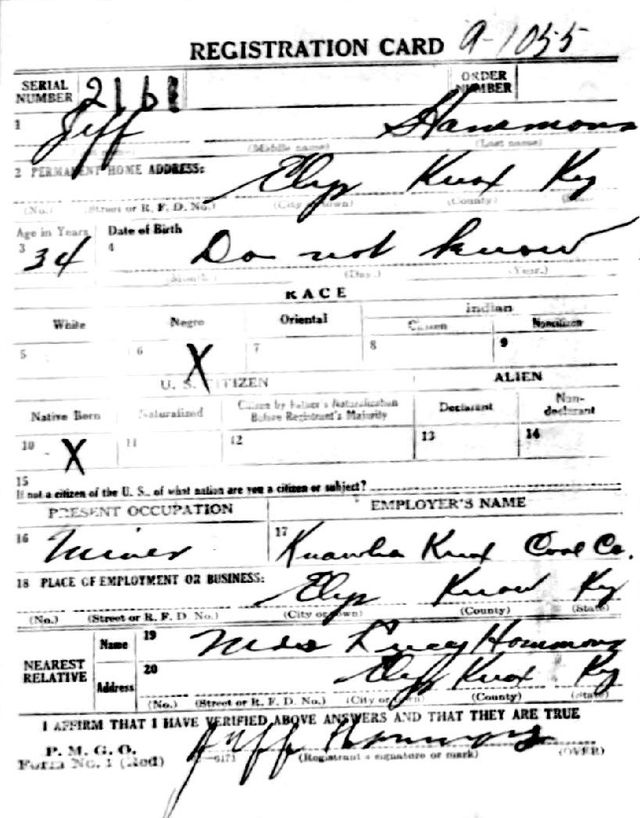 REGISTRATION CARD A-1055
SERIAL NUMBER 2161 ORDER NUMBER
1 Jeff Hammons
(Middle name) (Last name)
2 PERMANENT HOME ADDRESS: Elys Knox Ky
(No.) (Street or R. F. D. No.) (City or town) (County) (State)
Age in Years Date of Birth
3 34 4 Do not know
(Month) (Day) (Year.)
RACE
White Negro Oriental Indian
Citizen Noncitizen
5 6 X 7 8 9
U. S. CITIZEN ALIEN
Native Born Naturalized Citizen by Father's Naturalization Before Registrant's Majority Declarant Non-declarant
10 X 11 12 13 14
15
If not a citizen of the U. S., of what nation are you a citizen or subject?
PRESENT OCCUPATION EMPLOYER'S NAME
16 Miner 17 Knox Coal Co.
18 PLACE OF EMPLOYMENT OR BUSINESS:
Elys Know Ky
(No.) (Street or R. F. D. No.) (City or town) (County) (State)
NEAREST RELATIVE Name 19 Lucy Hammons
Address 20 Elys Knox Ky
(No.) (Street or R. F. D. No.) (City or town) (County) (State)
I AFFIRM THAT I HAVE VERIFIED ABOVE ANSWERS AND THAT THEY ARE TRUE
P. M. G. O.
Form No. 1 (Red) Jeff Hammons
(Registrant's signature or mark) (OVER)